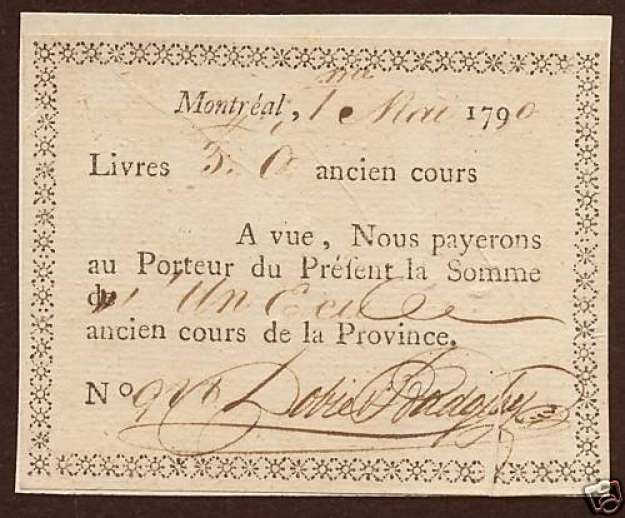 Montréal, 1er Mai 1790
Livres 3. 0 ancien cours
A vue, Nous payerons
au Porteur du Préſent la Somme
d'Un Ecu
ancien cours de la Province.
No Dobie & Badgley